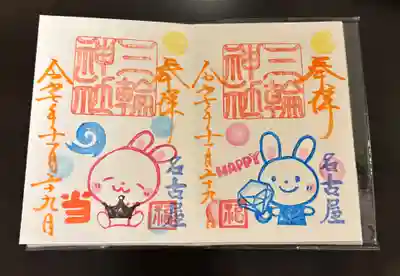 奉拝
三輪神社
令七年十一月二十九日
HAPPY
名古屋
奉拝
三輪神社
令七年十一月二十九日
当
名古屋